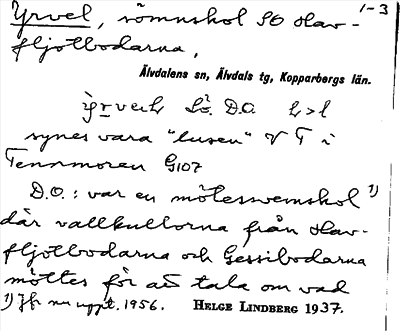 Yrvel, sömnskol SO Hav- 1-3
fljotbodarna,
Älvdalens sn, Älvdals tg, Kopparbergs län.
D.O. l>l
synes vara "lusen" V T i
Tennmoren G107
D.O.: var en mötessvemskol 1)
där vallkullorna från Hav-
fljotbodarna och Gessibodarna
möttes för att tala om vad
1) Jfr nu uppt. 1956. HELGE LINDBERG 1937.